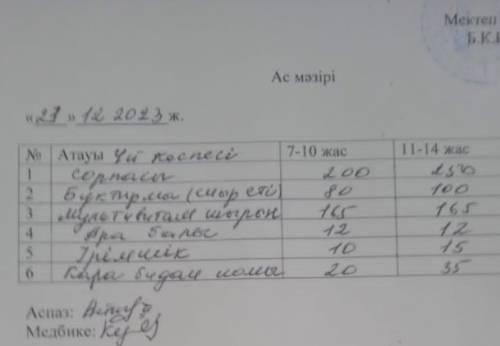 Мектеп
Б.К.
Ас мәзірі
«27» 12 2023 ж.
№ Атауы Үй кеспесі 7-10 жас 11-14 жас
1 сорпасы 200 250
2 Бұқтырма (сиыр еті) 80 100
3 Мультивитамин шырын 165 165
4 Ара балы 12 12
5 Ірімшік 10 15
6 Қара бидай наны 20 35
Аспаз:
Медбике: